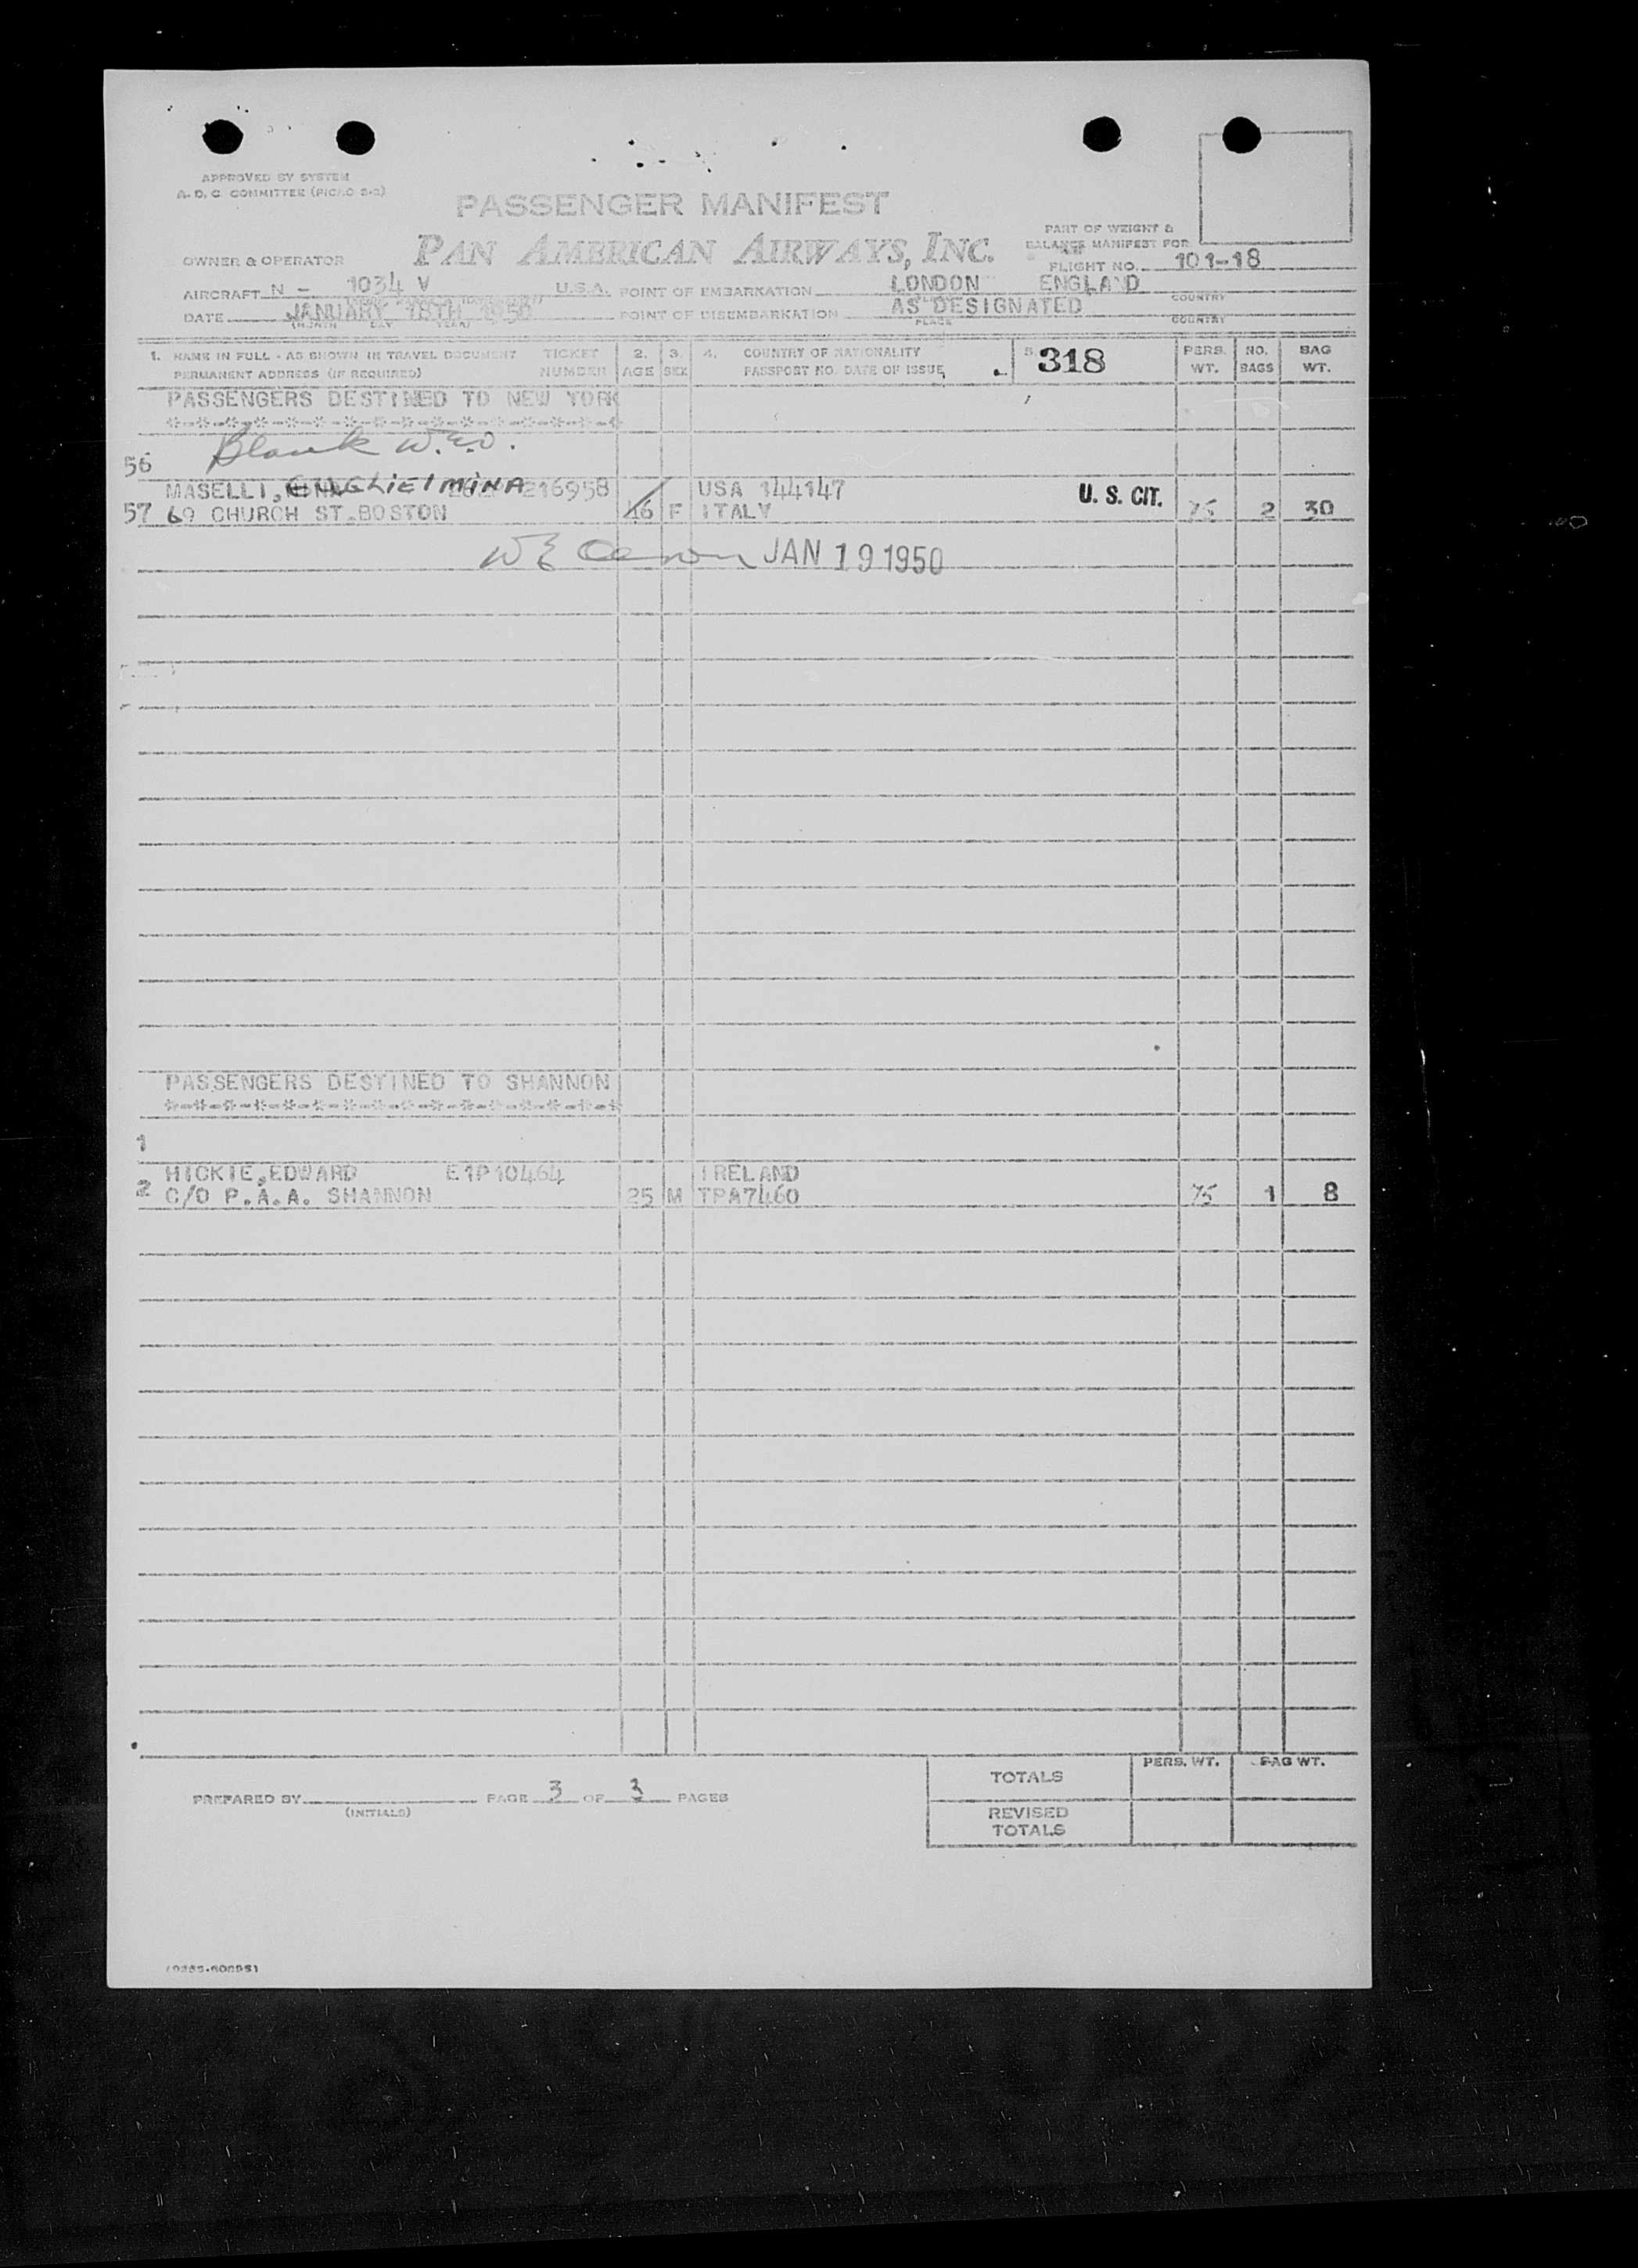 APPROVED BY SYSTEM
A. D. C. COMMITTEE
PASSENGER MANIFEST
PAN AMERICAN AIRWAYS, INC.
PART OF WEIGHT &
BALANCE MANIFEST FOR
OWNER & OPERATOR
FLIGHT NO. 101-18
AIRCRAFT N - 1034 V U.S.A. POINT OF EMBARKATION LONDON ENGLAND
COUNTRY
DATE JANUARY 18TH 1950 POINT OF DISEMBARKATION AS DESIGNATED
(MONTH DAY YEAR) PLACE COUNTRY
1. NAME IN FULL - AS SHOWN IN TRAVEL DOCUMENT TICKET 2. 3. 4. COUNTRY OF NATIONALITY 5. 318 PERS. NO. BAG
PERMANENT ADDRESS (IF REQUIRED) NUMBER AGE SEX PASSPORT NO. DATE OF ISSUE WT. BAGS WT.
PASSENGERS DESTINED TO NEW YORK
*-*-*-*-*-*-*-*-*-*-*-*-*-*-*-*
56 Blank W.E.O.
MASELLI, GUGLIELMINA 216958 USA 144147 U. S. CIT.
57 69 CHURCH ST.BOSTON 16 F ITALY 75 2 30
JAN 19 1950
PASSENGERS DESTINED TO SHANNON
*-*-*-*-*-*-*-*-*-*-*-*-*-*-*-*
1
HICKIE,EDWARD E1P10464 IRELAND
2 C/O P.A.A. SHANNON 25 M TPA7460 75 1 8
TOTALS PERS. WT. BAG WT.
PREPARED BY PAGE 3 OF 3 PAGES
(INITIALS)
REVISED
TOTALS